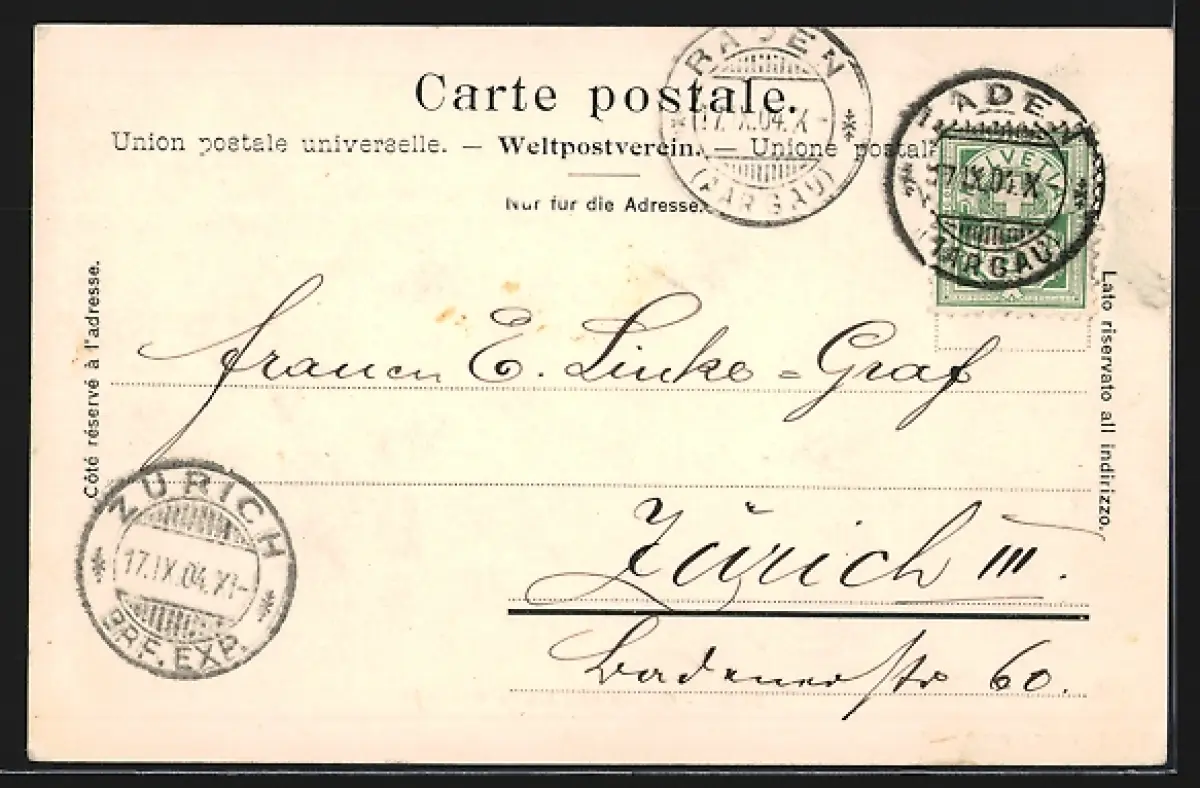 Carte postale.
Union postale universelle. — Weltpostverein. — Unione postal
Nur für die Adresse.
BADEN
17.IX.04.X-
(AARGAU)
BADEN
17.IX.04.X
(AARGAU)
HELVETIA
Côté réservé à l'adresse.
Lato riservato all indirizzo.
E. Linke = Graf
Zürich III.
Badenerstr 60.
ZÜRICH
17.IX.04.XI-
BRF. EXP.